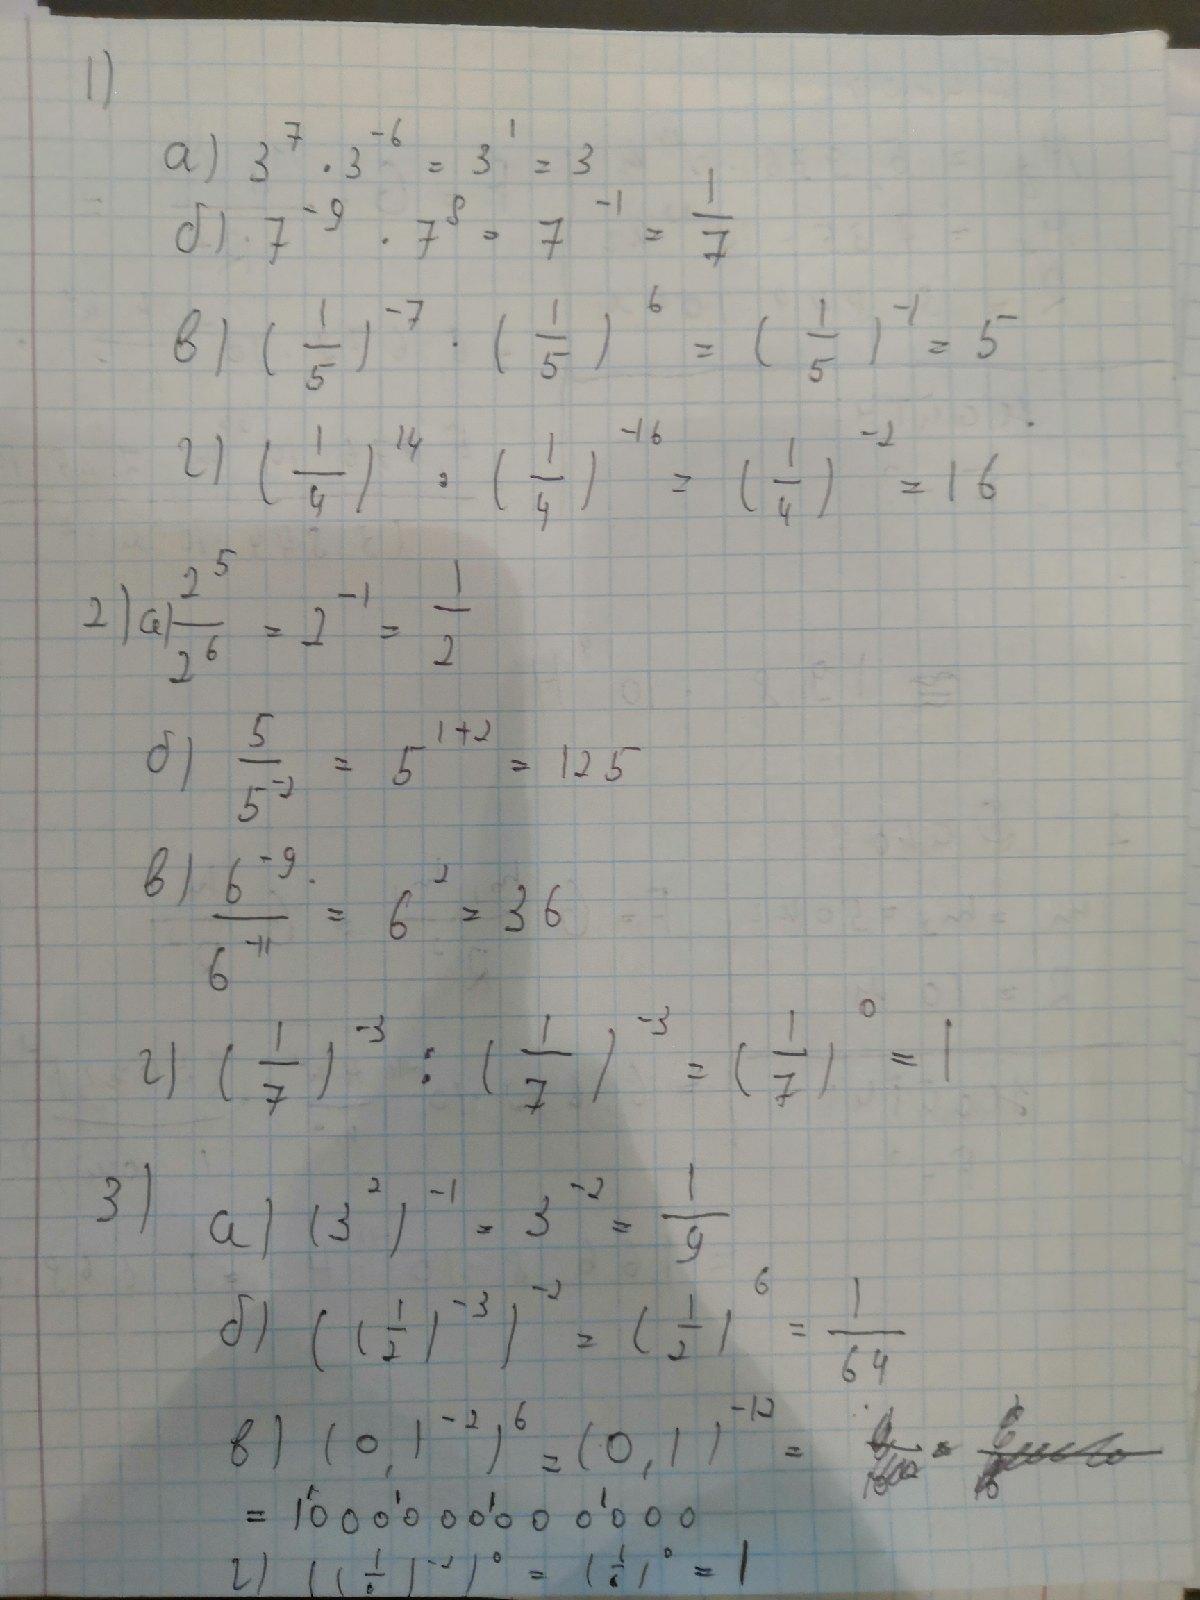 1)
а) 3^7 · 3^-6 = 3^1 = 3
б) 7^-9 · 7^8 = 7^-1 = 1/7
в) (1/5)^-7 · (1/5)^6 = (1/5)^-1 = 5
г) (1/4)^14 · (1/4)^-16 = (1/4)^-2 = 16
2) а) 2^5/2^6 = 2^-1 = 1/2
б) 5/5^-2 = 5^1+2 = 125
в) 6^-9/6^-11 = 6^2 = 36
г) (1/7)^-3 : (1/7)^-3 = (1/7)^0 = 1
3) а) (3^2)^-1 = 3^-2 = 1/9
б) ((1/2)^-3)^-2 = (1/2)^6 = 1/64
в) (0,1^-2)^6 = (0,1)^-12 =
= 1000000000000
г) ((1/6)^-2)^0 = (1/6)^0 = 1